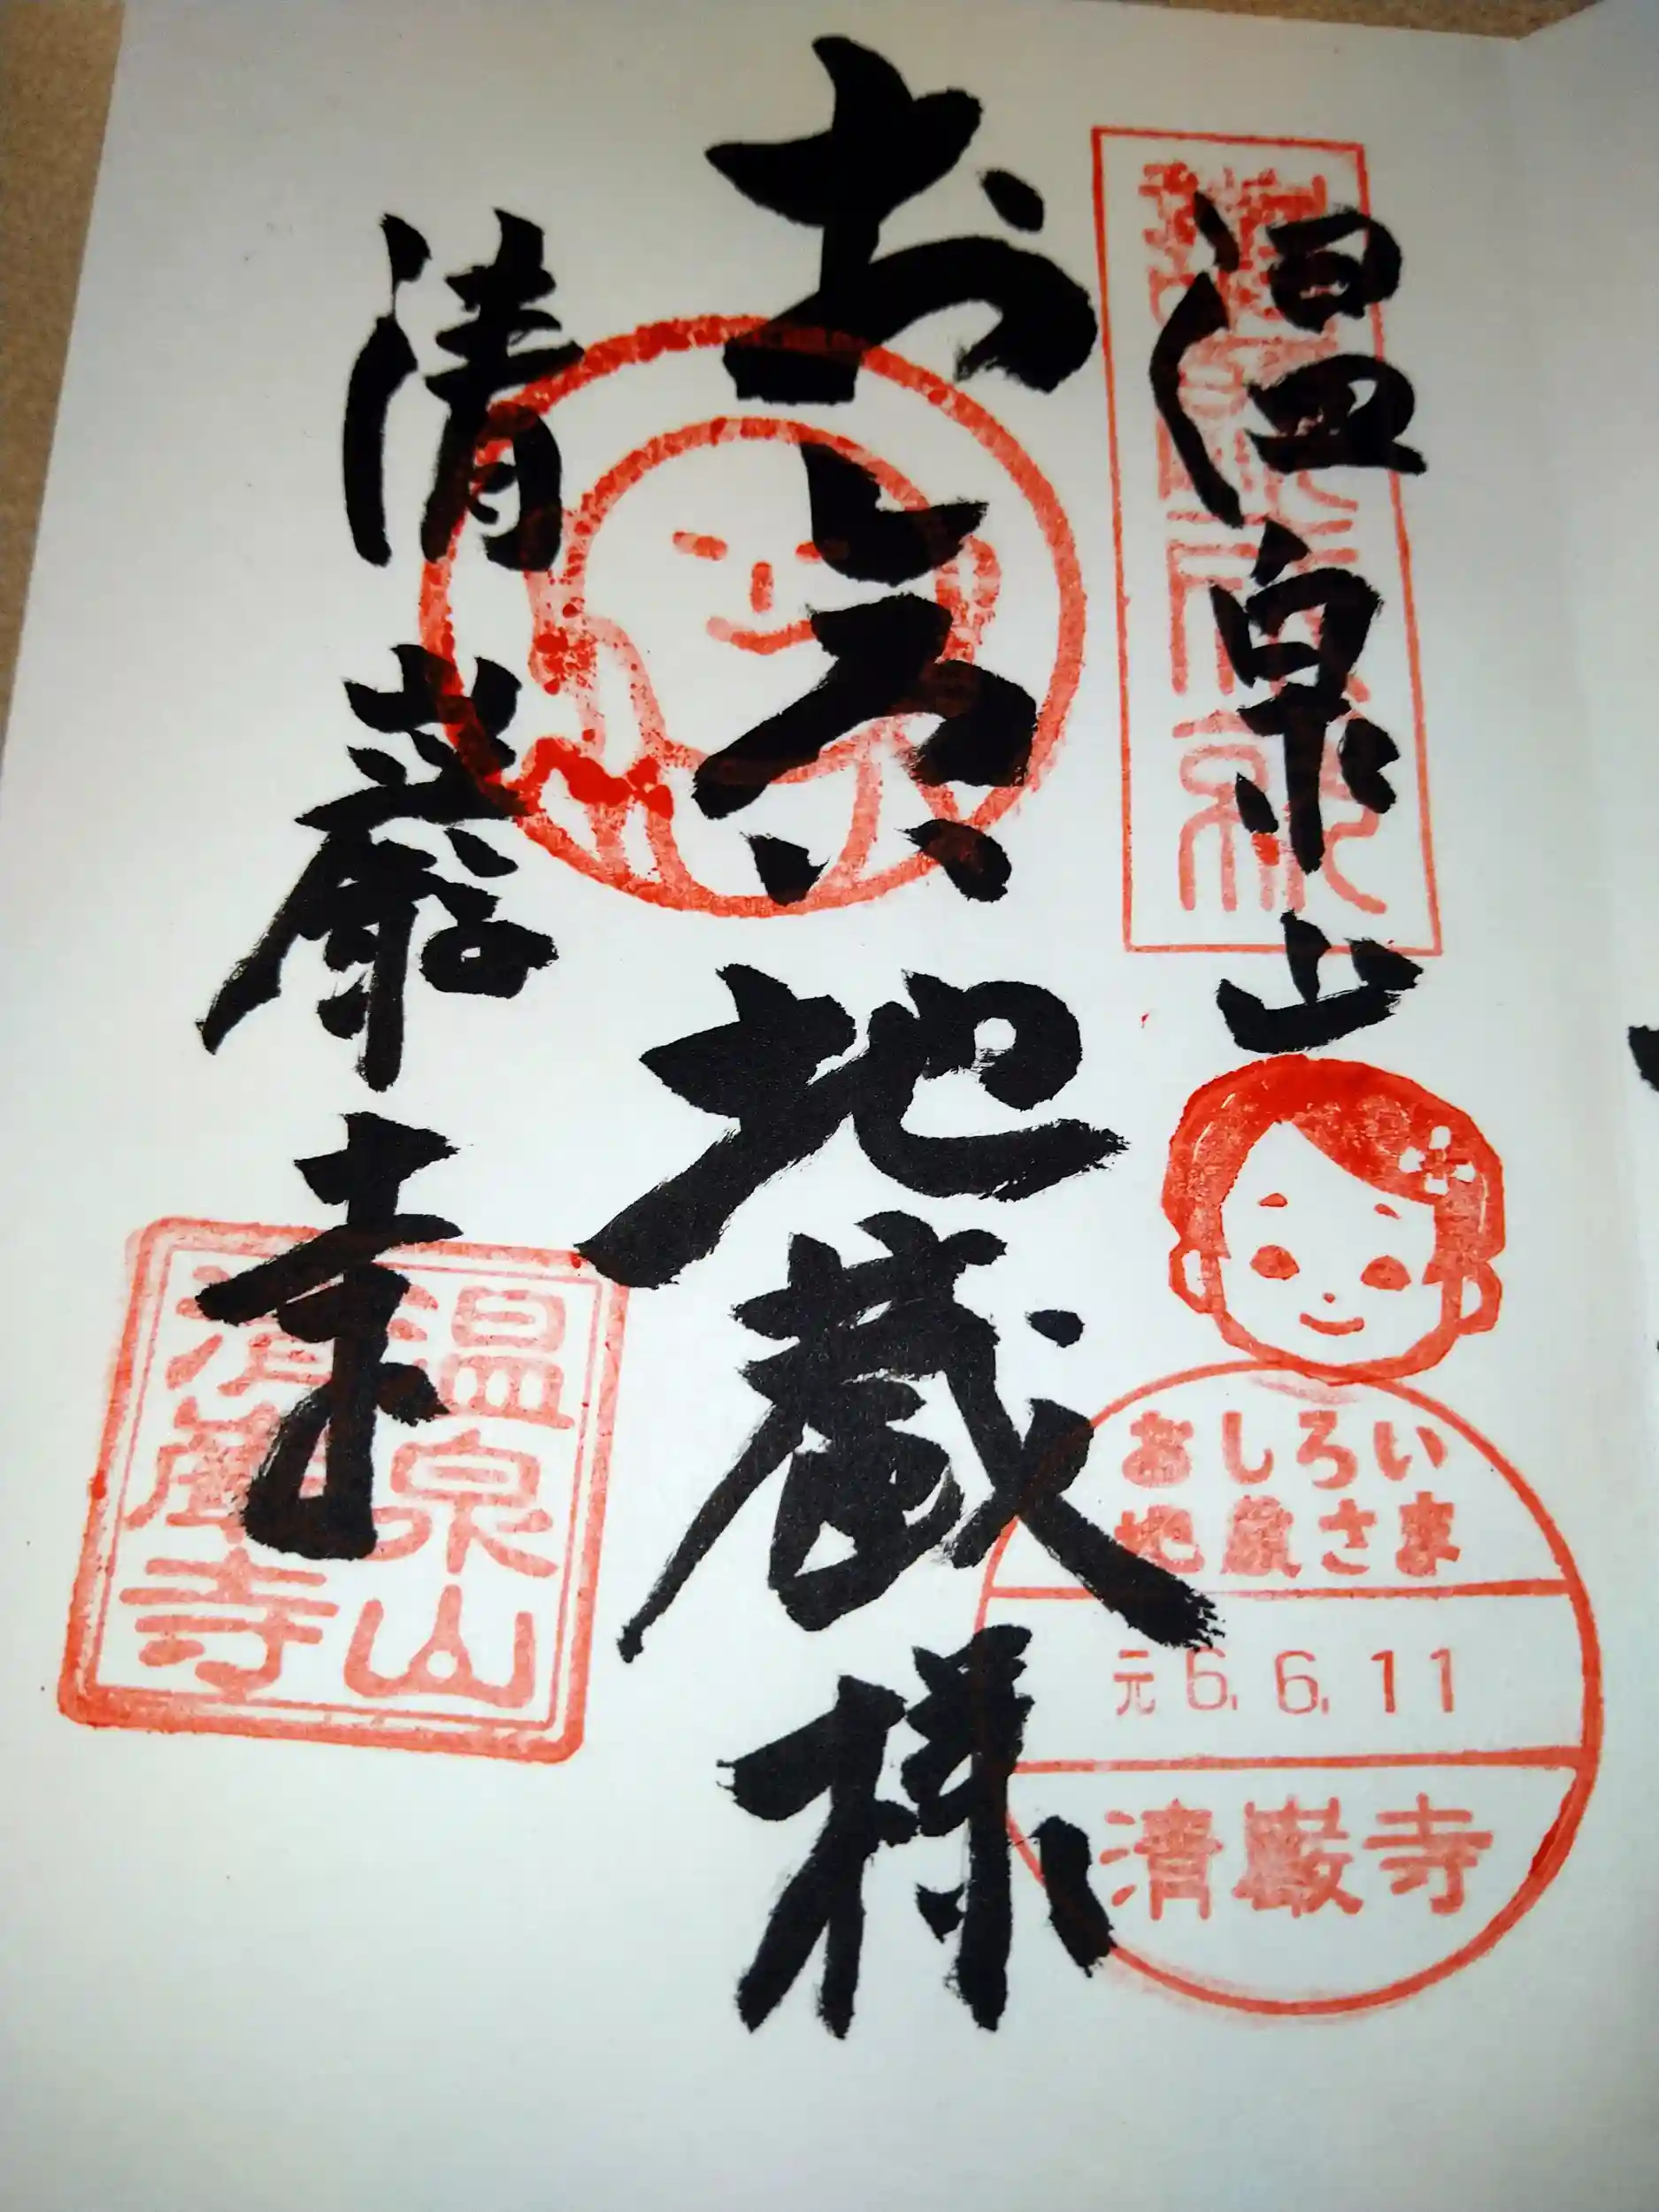 温泉山
おしろい地蔵様
清巌寺
おしろい
地蔵さま
元 6. 6. 11
清巌寺
温泉山
清巌寺